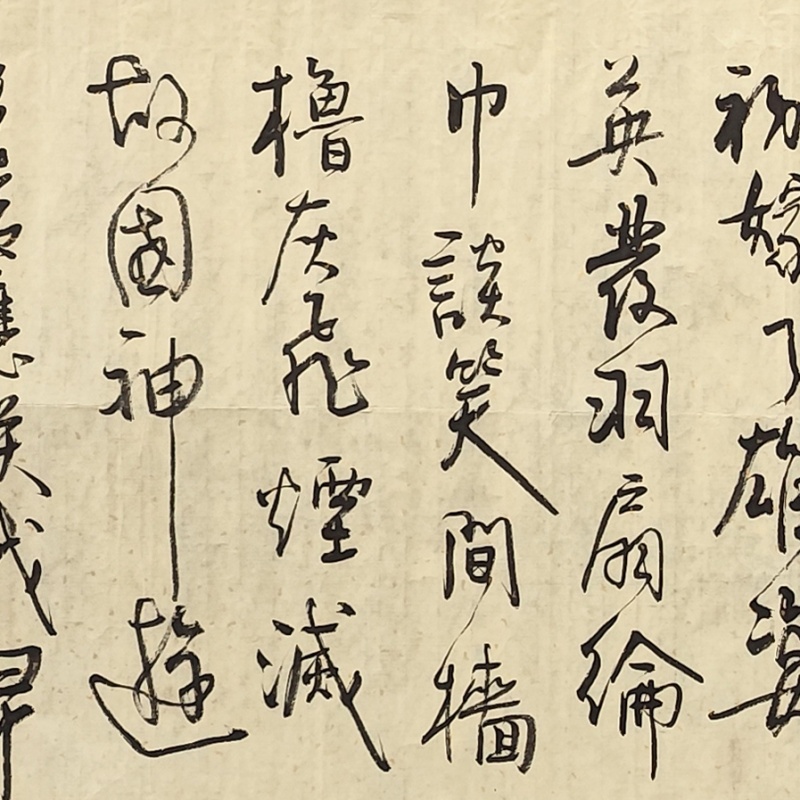 初嫁了雄姿
英發羽扇綸
巾談笑間檣
櫓灰飛煙滅
故國神遊
多情應笑我早